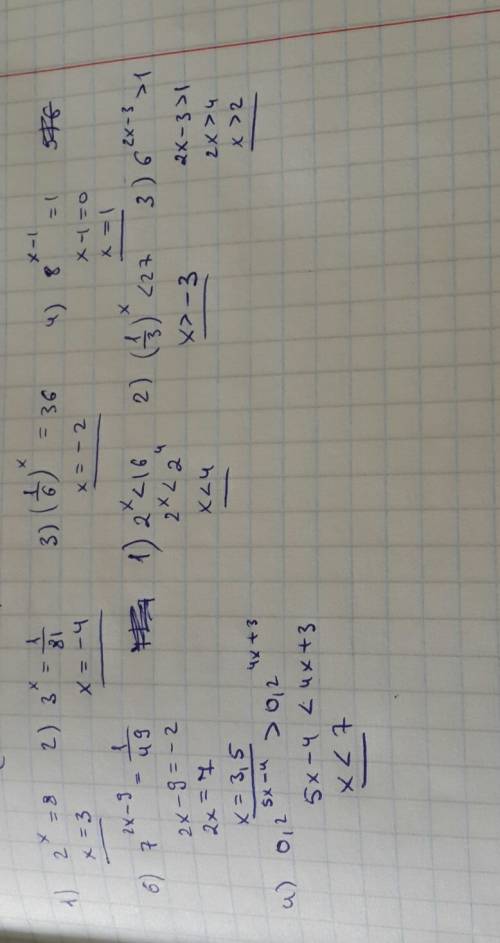 1) 2^x = 8 2) 3^x = 1/81 3) (1/6)^x = 36 4) 8^(x-1) = 1
x = 3 x = -4 x = -2 x-1=0
x = 1
б) 7^(2x-9) = 1/49
2x-9 = -2
2x = 7
x = 3,5
1) 2^x < 16 2) (1/3)^x < 27 3) 6^(2x-3) > 1
2^x < 2^4 x > -3 2x-3 > 1
x < 4 2x > 4
x > 2
4) 0,2^(5x-4) > 0,2^(4x+3)
5x-4 < 4x+3
x < 7